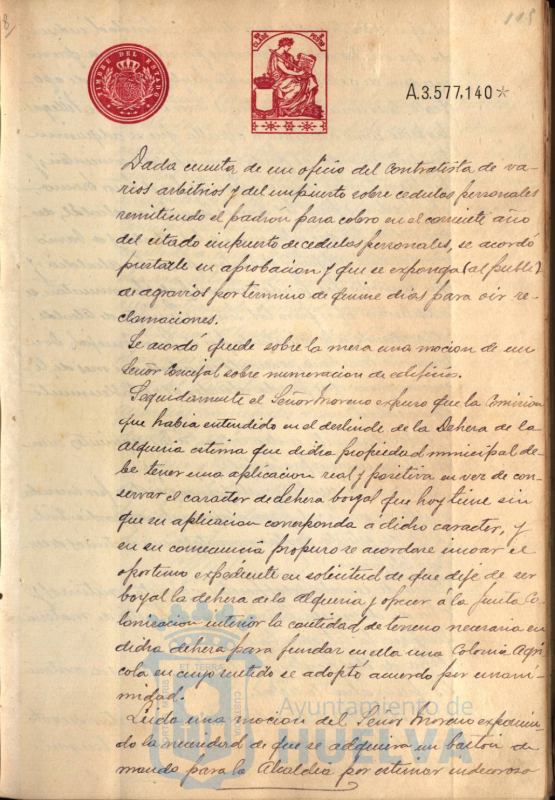 8/
115
TIMBRE DEL ESTADO
CLASE
A.3.577,140*
Dada cuenta de un oficio del contratista de va-
rios arbitrios y del impuesto sobre cedulas personales
remitiendo el padrón para cobro en el corriente año
del citado impuesto de cedulas personales, se acordó
prestarle su aprobacion y que se exponga (al public)
de agravios por termino de quince dias para oir re-
clamaciones.
Se acordó quede sobre la mesa una mocion de un
Señor Concejal sobre numeracion de edificios.
Seguidamente el Señor Moreno expuso que la Comision
que habia entendido en el deslinde de la Dehesa de la
Alqueria estima que dicha propiedad municipal de-
be tener una aplicacion real y positiva en vez de con-
servar el caracter de dehesa boyal que hoy tiene sin
que su aplicacion corresponda a dicho caracter, y
en su consecuencia propuso se acordase incoar el
oportuno expediente en solicitud de que deje de ser
boyal la dehesa de la Alqueria y ofrecer á la Junta Co-
lonizacion interior la cantidad de terreno necesaria en
dicha dehesa para fundar en ella una Colonia Agri
cola en cuyo sentido se adoptó acuerdo por unani-
midad.
Leida una mocion del Señor Moreno exponien-
do la necesidad de que se adquiera un baston de
mando para la Alcaldia por estimar indecoroso
Ayuntamiento de
HUELVA